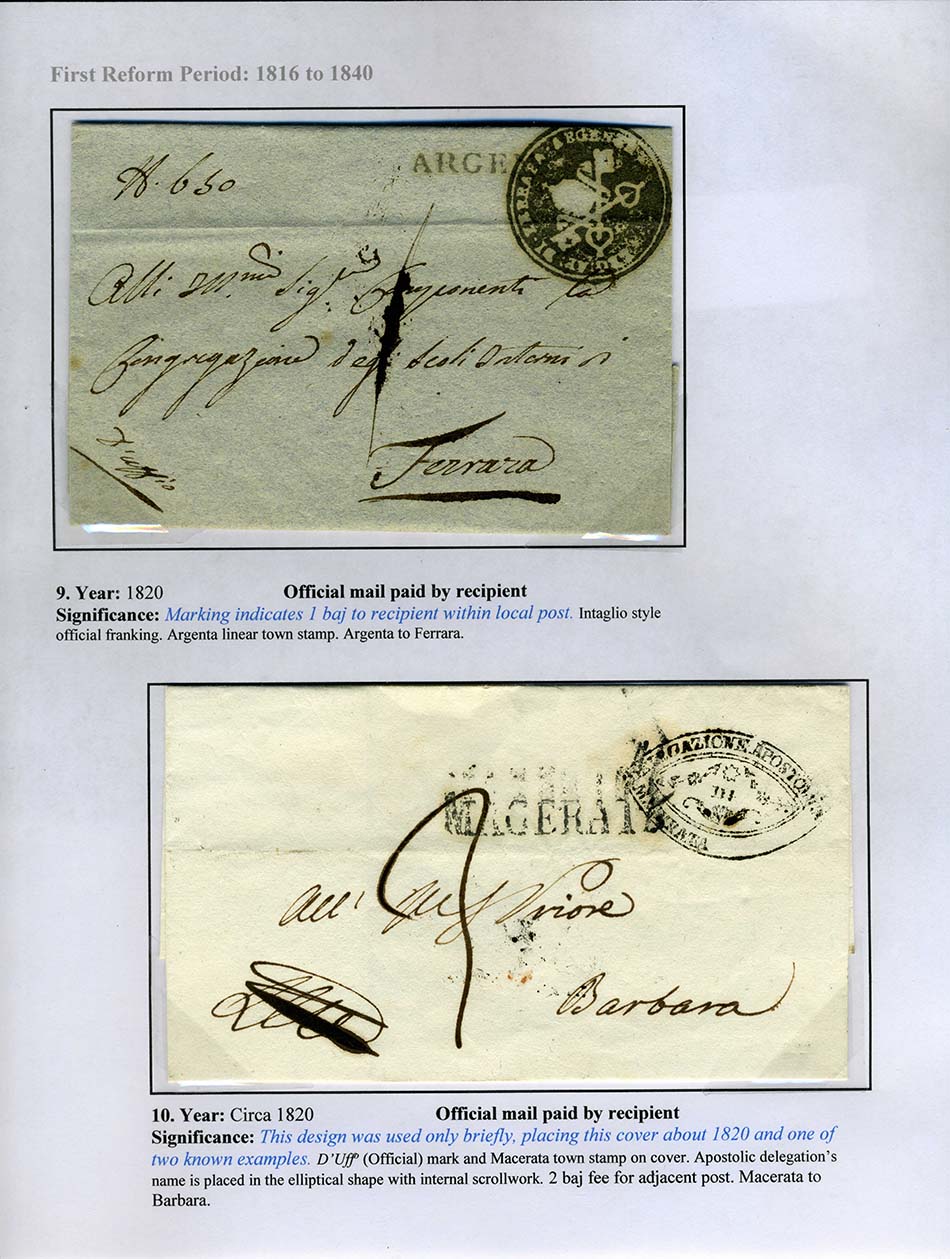 First Reform Period: 1816 to 1840
N. 650
ARGE
Congregazione degli
Ferrara
9. Year: 1820 Official mail paid by recipient
Significance: Marking indicates 1 baj to recipient within local post. Intaglio style
official franking. Argenta linear town stamp. Argenta to Ferrara.
GAZIONE APOSTOLICA
DI
MACERATA
MACERATA
All' Priore
Barbara
10. Year: Circa 1820 Official mail paid by recipient
Significance: This design was used only briefly, placing this cover about 1820 and one of
two known examples. D'Uffº (Official) mark and Macerata town stamp on cover. Apostolic delegation's
name is placed in the elliptical shape with internal scrollwork. 2 baj fee for adjacent post. Macerata to
Barbara.